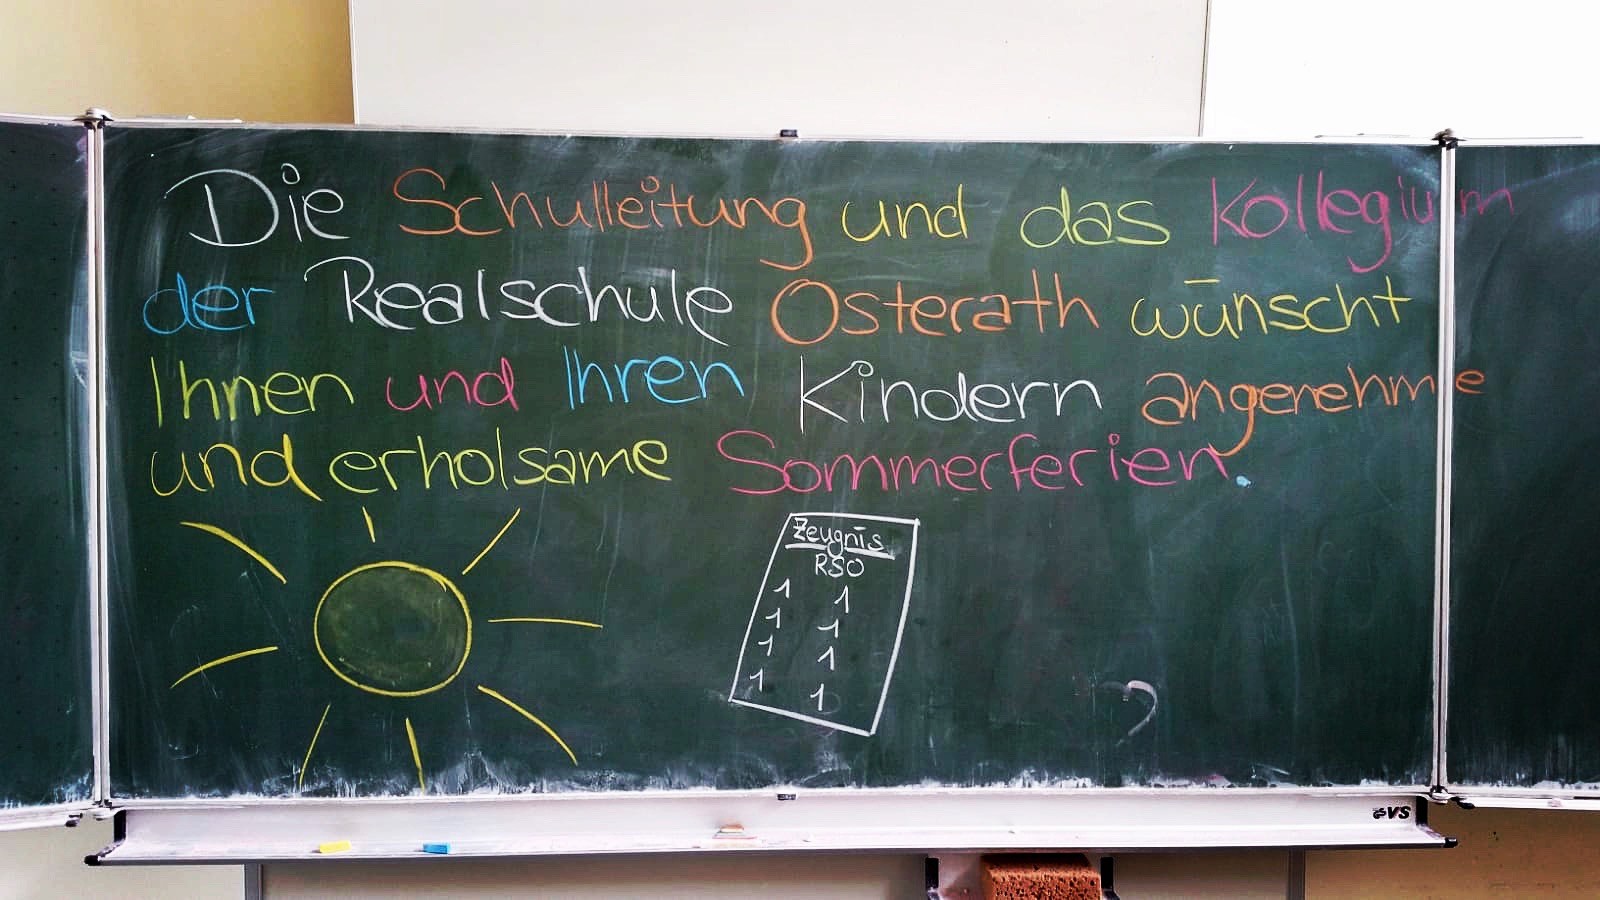 Die Schulleitung und das Kollegium
der Realschule Osterath wünscht
Ihnen und Ihren Kindern angenehme
und erholsame Sommerferien.
Zeugnis
RSO
1 1
1 1
1 1
1 1
VS